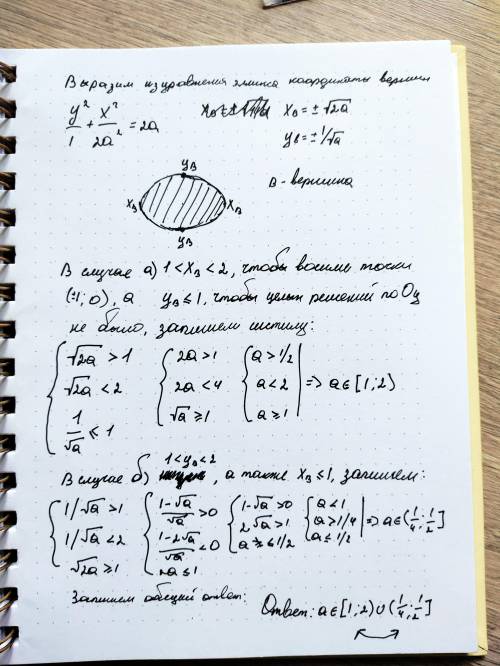 Выразим из уравнения эллипса координаты вершин
y²/1 + x²/2a² = 2a
x_в = ±√2a
y_в = ±1/√a
y_в
x_в x_в
y_в
в - вершина
В случае а) 1 < x_в < 2, чтобы
(±1; 0), а y_в ≤ 1, чтобы целых решений по Oy
не было, запишем систему:
{ √2a > 1 { 2a > 1 { a > 1/2
√2a < 2 2a < 4 a < 2 | => a ∈ [1; 2)
1/√a ≤ 1 √a ≥ 1 a ≥ 1
1 < y_в < 2
В случае б) , а также x_в ≤ 1, запишем:
{ 1/√a > 1 { (1-√a)/√a > 0 { 1-√a > 0 { a < 1
1/√a < 2 (1-2√a)/√a < 0 2√a > 1 a > 1/4 | => a ∈ (1/4; 1/2]
√2a ≥ 1 2a ≤ 1 a ≤ 1/2 a ≤ 1/2
Запишем общий ответ:
Ответ: a ∈ [1; 2) ∪ (1/4; 1/2]